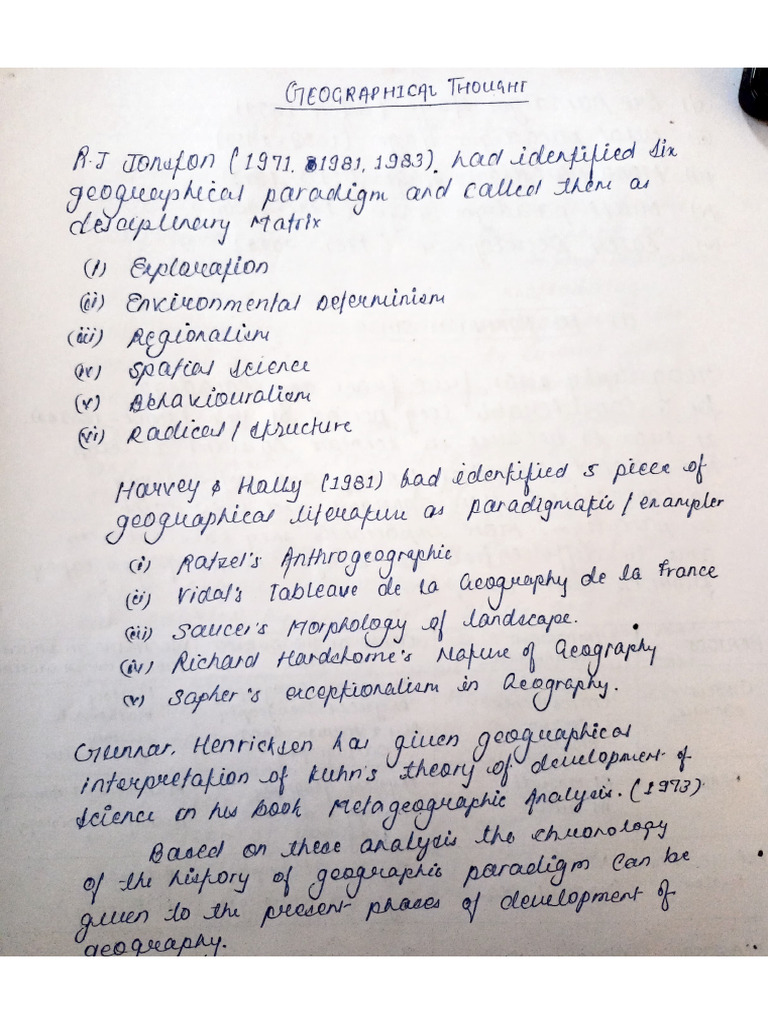 GEOGRAPHICAL THOUGHT
R.J Jonston (1971, 1981, 1983). had identified six
geographical paradigm and called them as
desciplinary Matrix
(i) Explanation
(ii) Environmental Determinism
(iii) Regionalism
(iv) Spatial science
(v) Behaviouralism
(vi) Radical / structure
Harvey & Hally (1981) had identified 5 piece of
geographical literature as paradigmatic / exampler
(i) Ratzel's Anthrogeographic
(ii) Vidal's Tableave de la Geography de la France
(iii) Saucer's Morphology of landscape.
(iv) Richard Hardshorne's Nature of Geography
(v) Sapher's exceptionalism in Geography.
Gunnar, Henricksen has given geographical
interpretation of Kuhn's theory of development of
science in his book Metageographic Analysis. (1973)
Based on these analysis the chronology
of the history of geographic paradigm can be
given to the present phases of development of
geography.